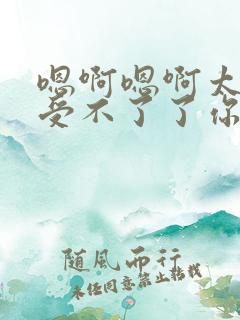 嗯啊嗯啊太
受不了了你
随風而行
未经同意禁止转载